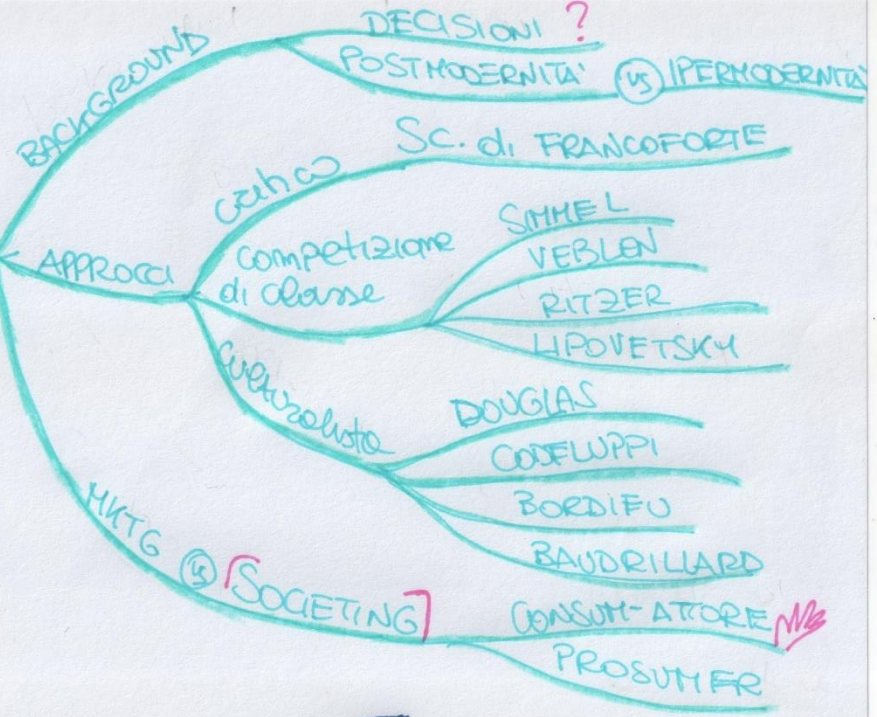 BACKGROUND
DECISIONI ?
POSTMODERNITA' VS IPERMODERNITA'
APPROCCI
critico
Sc. di FRANCOFORTE
competizione
di classe
SIMMEL
VEBLEN
RITZER
LIPOVETSKY
Culturalista
DOUGLAS
CODELUPPI
BORDIEU
BAUDRILLARD
MKTG VS [SOCIETING]
CONSUM-ATTORE
PROSUMER